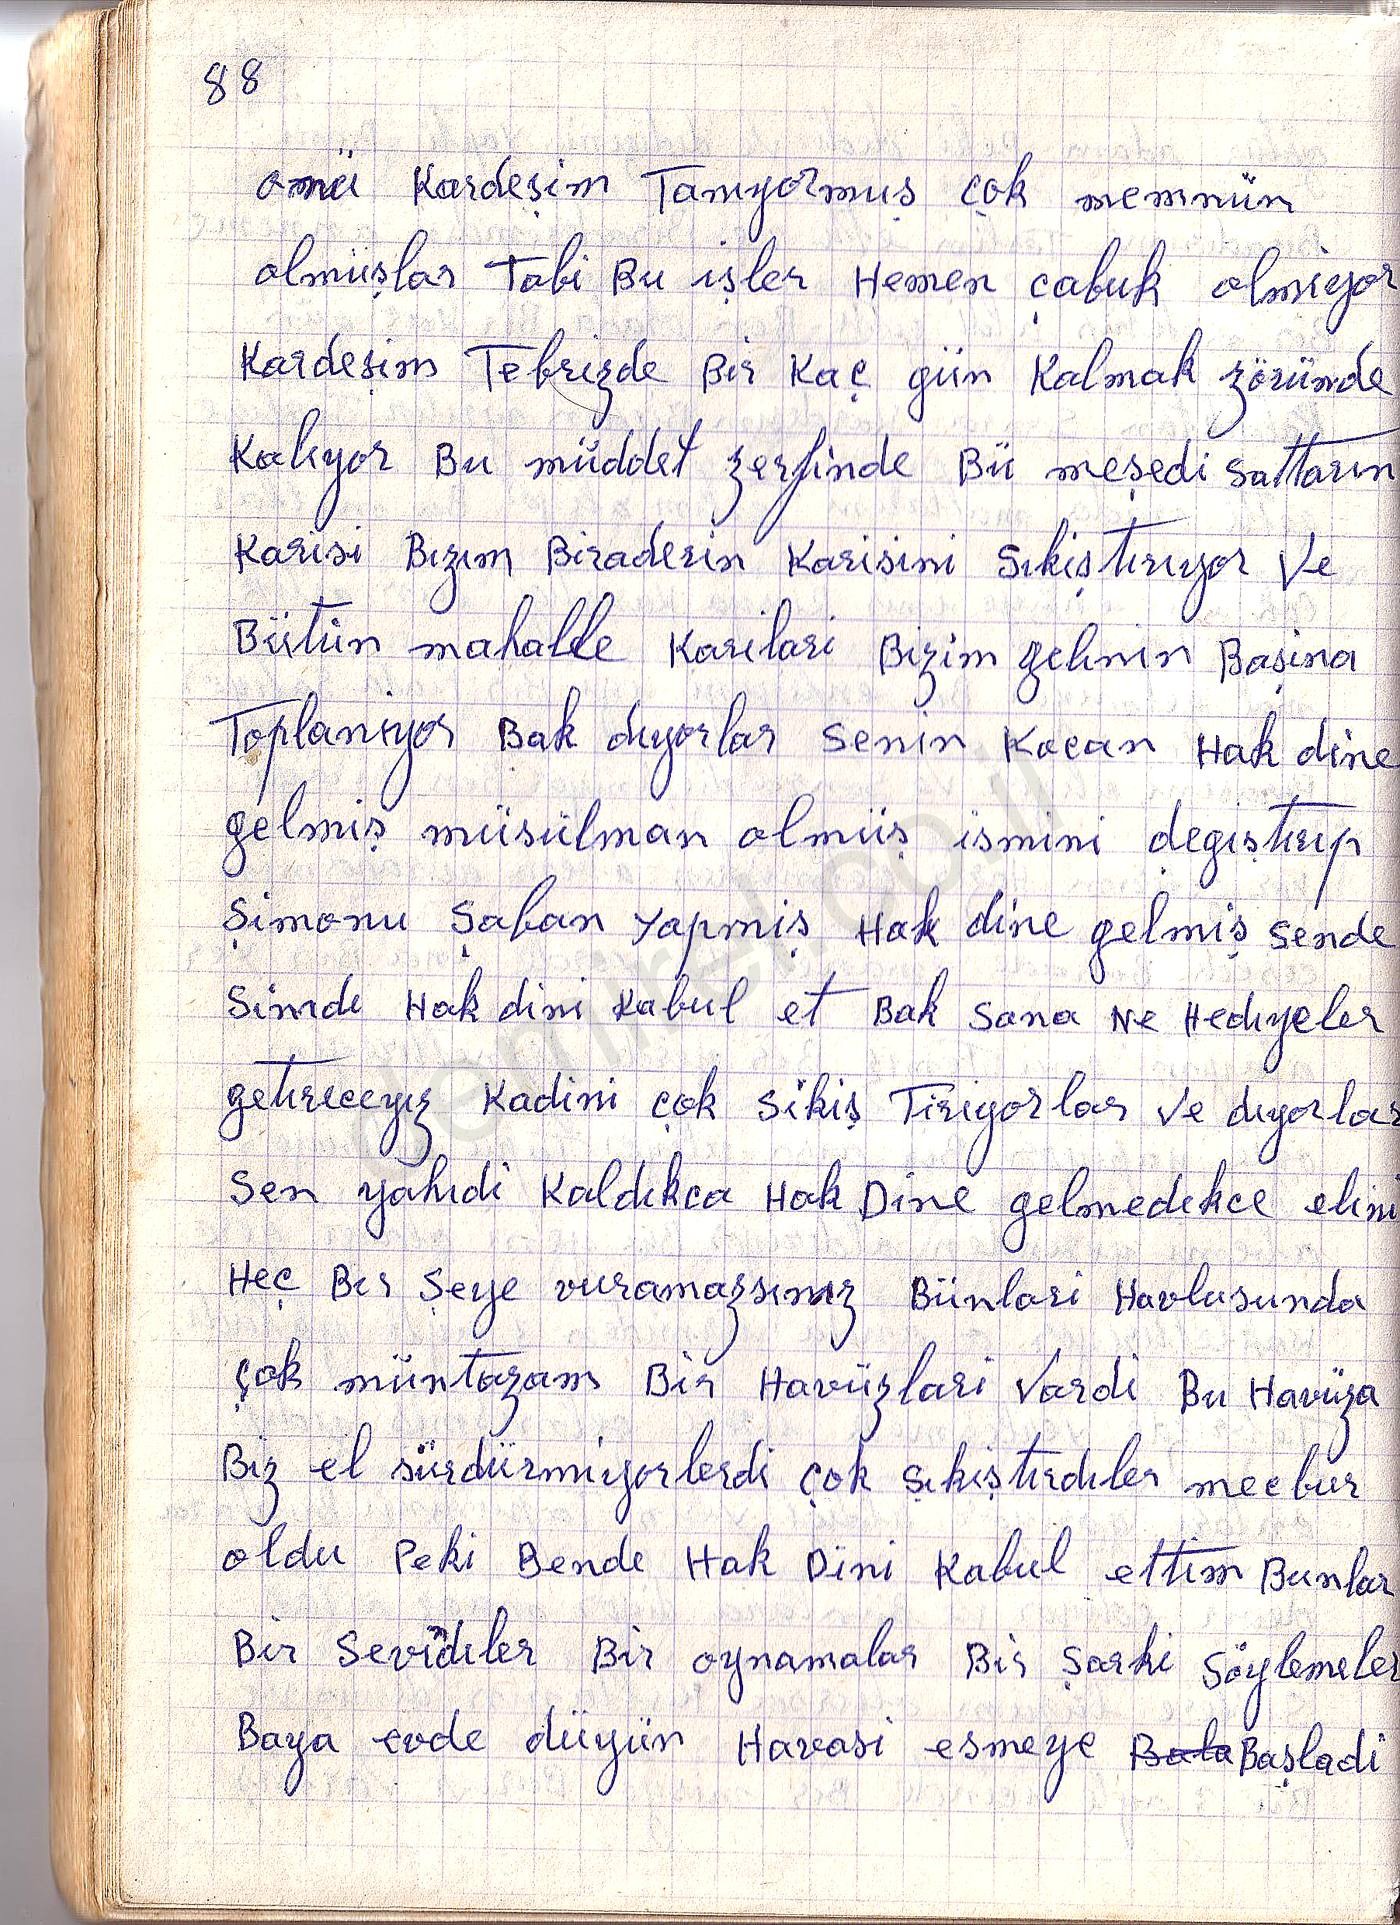 88
onü Kardeşim Tanıyormuş çok memnün
olmüşlar Tabi Bu işler Hemen çabuk olmiyor
Kardeşim Tebrizde Bir Kaç gün Kalmak zöründe
Kalıyor Bu müddet zerfinde Bü meşedi Sattarın
Karisi Bızım Biraderin Karisini Sıkiştırıyor Ve
Bütün mahalle Karilari Bizim gelinin Başina
Toplaniyor Bak dıyorlar Senin Kocan Hak dine
gelmiş müsülman olmüş ismini değıştırıp
Şimonu Şaban Yapmiş Hak dine gelmiş Sende
Simde Hak dini Kabul et Bak Sana Ne Hedıyeler
getıreceyız Kadini çok Sikiş Tiriyorlar Ve dıyorlar
Sen yahıdi Kaldıkca Hak Dine gelmedıkce elini
Heç Bır Şeye vuramazsınız Bünlari Havlusunda
çok müntazam Bir Havüzlari Vardi Bu Havüza
Biz el sürdürmiyorlerdi çok şıkiştırdıler mecbur
oldu Peki Bende Hak Dini Kabul ettim Bunlar
Bir Sevindıler Bir oynamalar Bir Şarki Söylemeler
Baya evde düyün Havasi esmeye Bala Başladi
demirel.co.il